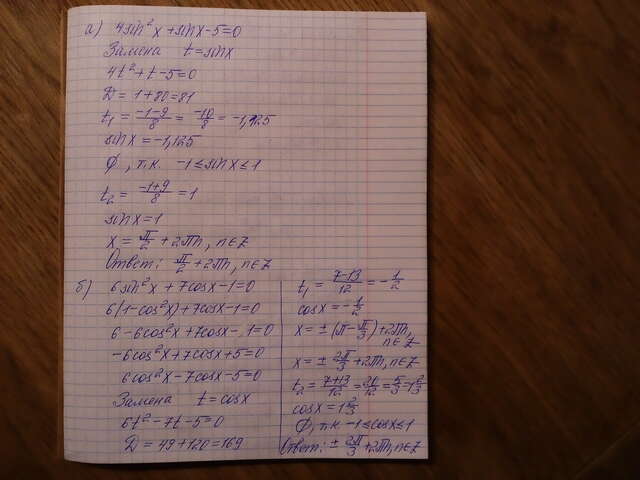 а) 4sin²x + sinx - 5 = 0
Замена t = sinx
4t² + t - 5 = 0
D = 1 + 80 = 81
t₁ = (-1-9)/8 = -10/8 = -1,125
sinx = -1,125
∅, т.к. -1 ≤ sinx ≤ 1
t₂ = (-1+9)/8 = 1
sinx = 1
x = π/2 + 2πn, n∈Z
Ответ: π/2 + 2πn, n∈Z
б) 6sin²x + 7cosx - 1 = 0
6(1-cos²x) + 7cosx - 1 = 0
6 - 6cos²x + 7cosx - 1 = 0
-6cos²x + 7cosx + 5 = 0
6cos²x - 7cosx - 5 = 0
Замена t = cosx
6t² - 7t - 5 = 0
D = 49 + 120 = 169
t₁ = (7-13)/12 = -1/2
cosx = -1/2
x = ± (π - π/3) + 2πn,
n∈Z
x = ± 2π/3 + 2πn, n∈Z
t₂ = (7+13)/12 = 20/12 = 5/3 = 1 2/3
cosx = 1 2/3
∅, т.к. -1 ≤ cosx ≤ 1
Ответ: ± 2π/3 + 2πn, n∈Z